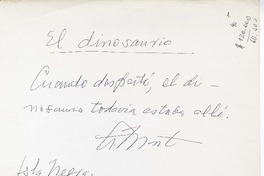 El dinosaurio
Cuando despertó, el di-
nosaurio todavía estaba allí.
Isla Negra